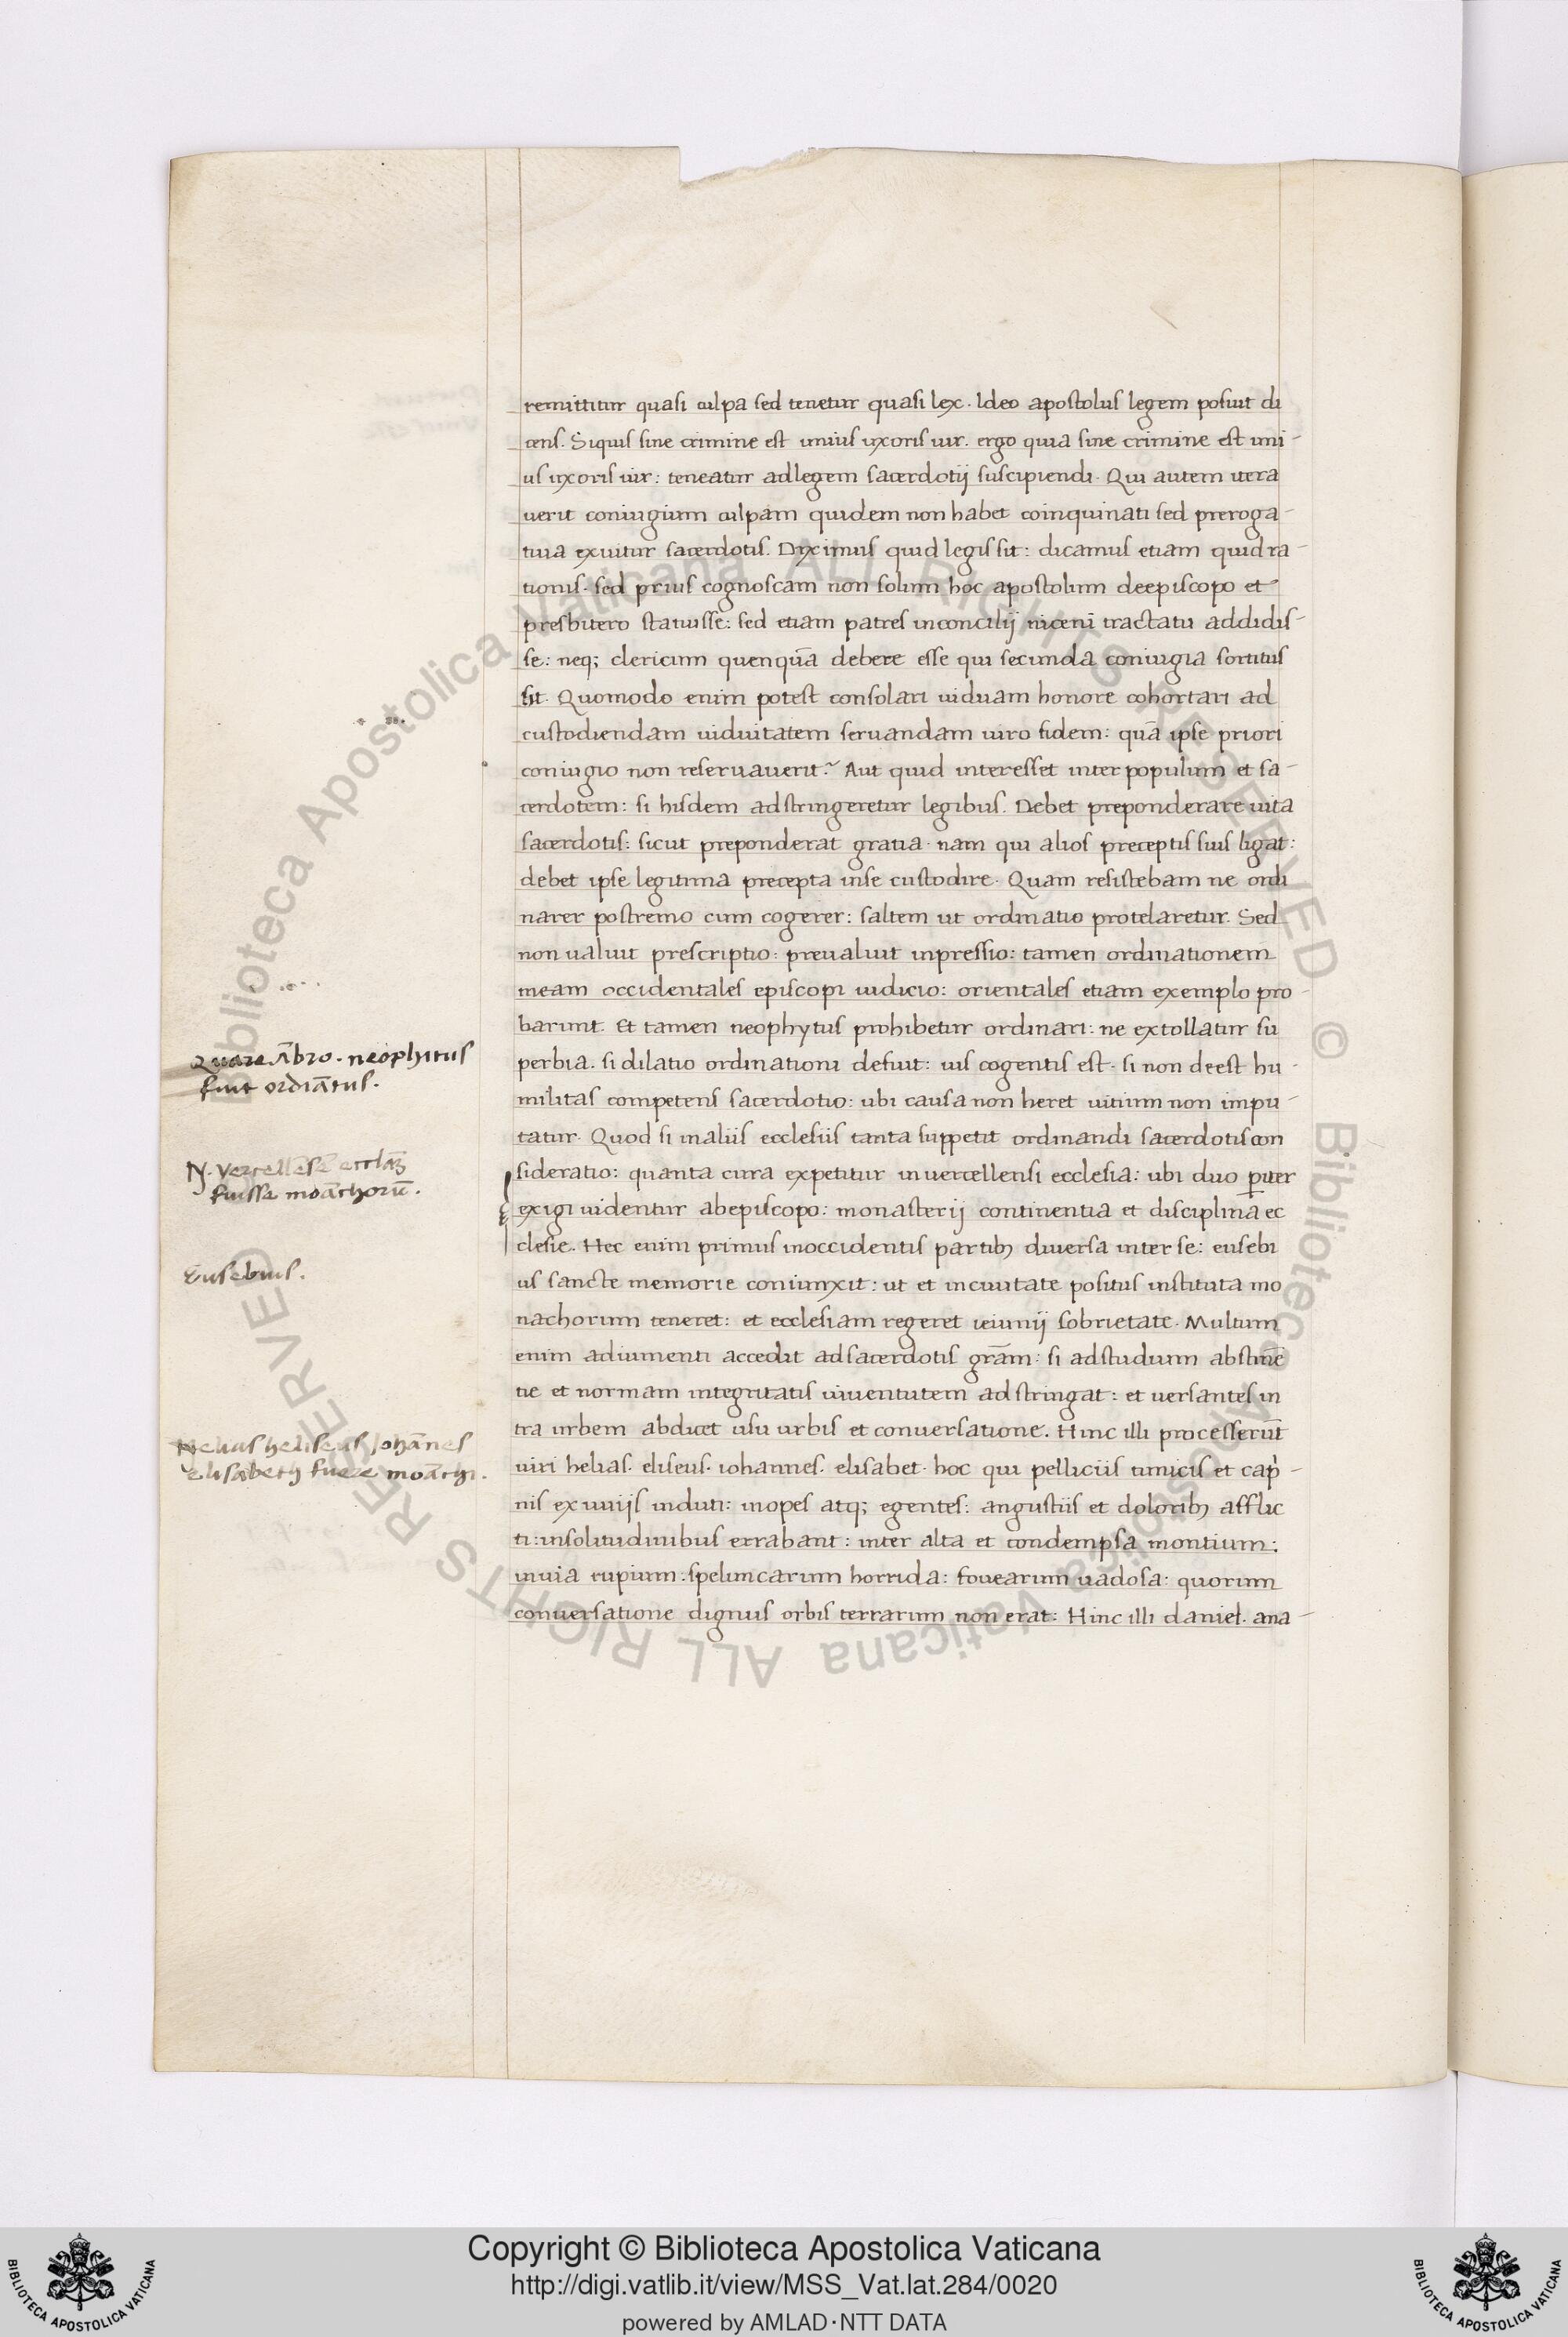 remittitur quasi culpa sed tenetur quasi lex. Ideo apostolus legem posuit di
cens. Siquis sine crimine est unius uxoris uir. ergo quia sine crimine est uni-
us uxoris uir: teneatur adlegem sacerdotij suscipiendi. Qui autem itera
uerit coniugium culpam quidem non habet coinquinati sed preroga-
tiua exuitur sacerdotis. Diximus quid legis sit: dicamus etiam quid ra-
tionis. sed prius cognoscam non solum hoc apostolum deepiscopo et
presbitero statuisse: sed etiam patres inconcilij niceni tractatu addidis-
se: neq; clericum quenquā debere esse qui secunda coniugia sortitus
sit. Quomodo enim potest consolari uiduam honore cohortari ad
custodiendam uiduitatem seruandam uiro fidem: quā ipse priori
coniugio non reseruauerit? Aut quid interesset inter populum et sa-
cerdotem: si hisdem adstringeretur legibus. Debet preponderare uita
sacerdotis: sicut preponderat gratia. nam qui alios preceptis suis ligat:
debet ipse legitima precepta inse custodire. Quam resistebam ne ordi
narer postremo cum cogerer: saltem ut ordinatio protelaretur. Sed
non ualuit prescriptio: preualuit inpressio: tamen ordinationem
meam occidentales episcopi iudicio: orientales etiam exemplo pro-
barunt. Et tamen neophytus prohibetur ordinari: ne extollatur su
perbia. si dilatio ordinationi defuit: uis cogentis est. si non deest hu-
militas competens sacerdotio: ubi causa non heret uitium non impu-
tatur. Quod si inaliis ecclesiis tanta suppetit ordinandi sacerdotis con
sideratio: quanta cura expetitur inuercellensi ecclesia: ubi duo ꝑiter
exigi uidentur abepiscopo: monasterij continentia et disciplina ec
clesie. Hec enim primus inoccidentis partibꝫ diuersa inter se: eusebi
us sancte memorie coniunxit: ut et inciuitate positus instituta mo
nachorum teneret: et ecclesiam regeret ieiunij sobrietate. Multum
enim adiumenti accedit adsacerdotis grām: si adstudium abstinē
tie et normam integritatis iuuentutem adstringat: et uersantes in
tra urbem abdicet usu urbis et conuersatione. Hinc illi processerūt
uiri helias. eliseus. iohannes. elisabet. hoc qui pelliciis tunicis et cap̍-
nis exuuijs induti: inopes atq; egentes: angustiis et doloribꝫ afflic
ti: insolitudinibus errabant: inter alta et condempsa montium:
inuia rupium: speluncarum horrida: fouearum uadosa: quorum
conuersatione dignus orbis terrarum non erat: Hinc illi daniel. ana-
Quare Ābro. neophitus
fuit ordiātus.
N. vercellēsē eccłaꝫ
fuisse moāchorū.
Eusebius.
Helias heliseus Johānes
elisabeth fuere moāchi.
Copyright © Biblioteca Apostolica Vaticana
http://digi.vatlib.it/view/MSS_Vat.lat.284/0020
powered by AMLAD·NTT DATA
BIBLIOTECA APOSTOLICA VATICANA
BIBLIOTECA APOSTOLICA VATICANA
Biblioteca Apostolica Vaticana ALL RIGHTS RESERVED © Biblioteca Apostolica Vaticana ALL RIGHTS RESERVED